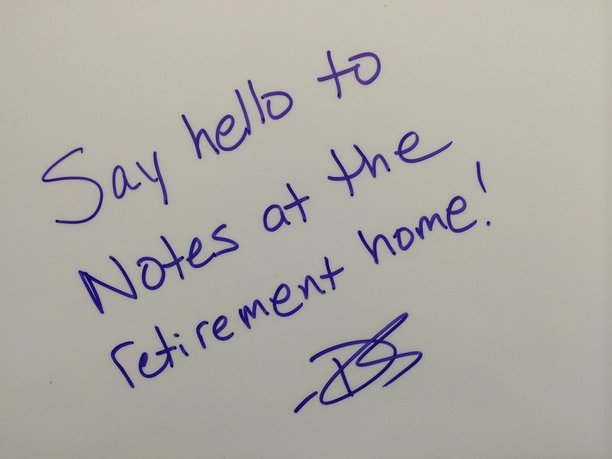 Say hello to
Notes at the
retirement home!
-DS